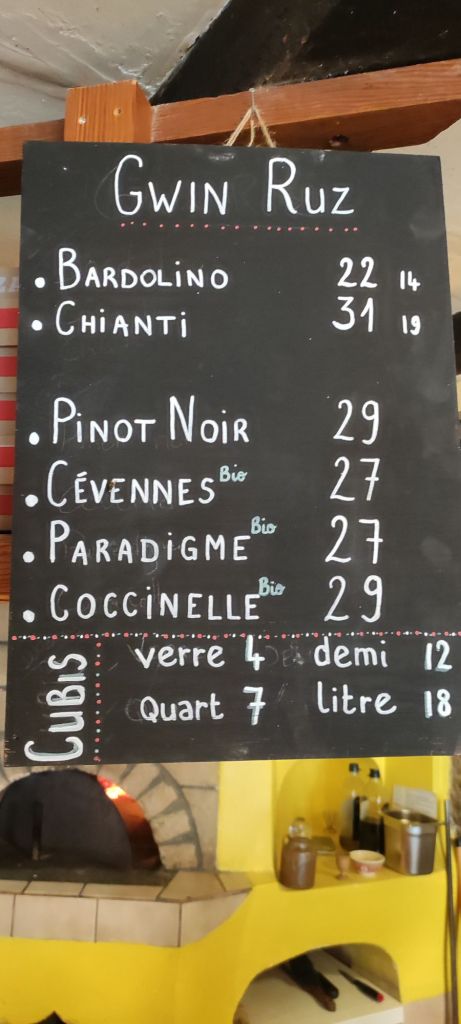 Gwin Ruz
• Bardolino 22 14
• Chianti 31 19
• Pinot Noir 29
• Cévennes Bio 27
• Paradigme Bio 27
• Coccinelle Bio 29
Cubis
verre 4 demi 12
Quart 7 litre 18